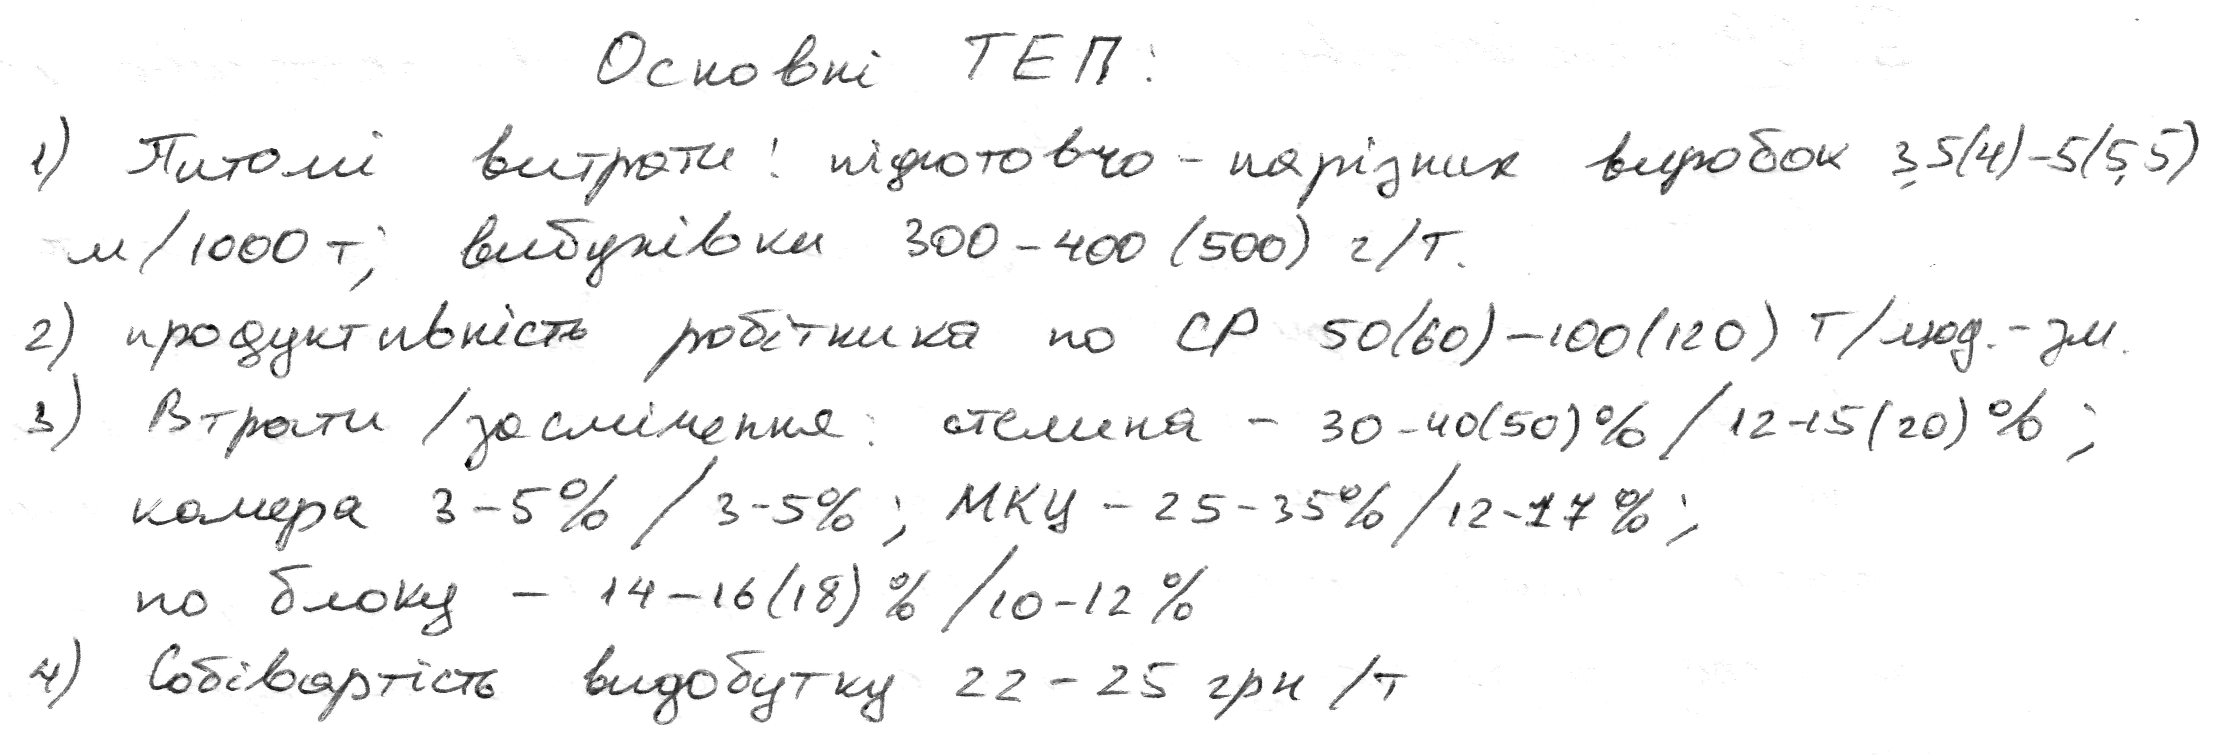 Основні ТЕП:
1) Питомі витрати: підготовчо-нарізних виробок 3,5(4)-5(5,5)
м/1000 т; вибухівки 300-400 (500) г/т.
2) продуктивність робітника по СР 50(60)-100(120) т/люд.-зм.
3) Втрати/засмічення: стелина - 30-40(50)%/12-15(20)%;
камера 3-5%/3-5%; МКЦ - 25-35%/12-17%;
по блоку - 14-16(18)%/10-12%
4) Собівартість видобутку 22-25 грн/т